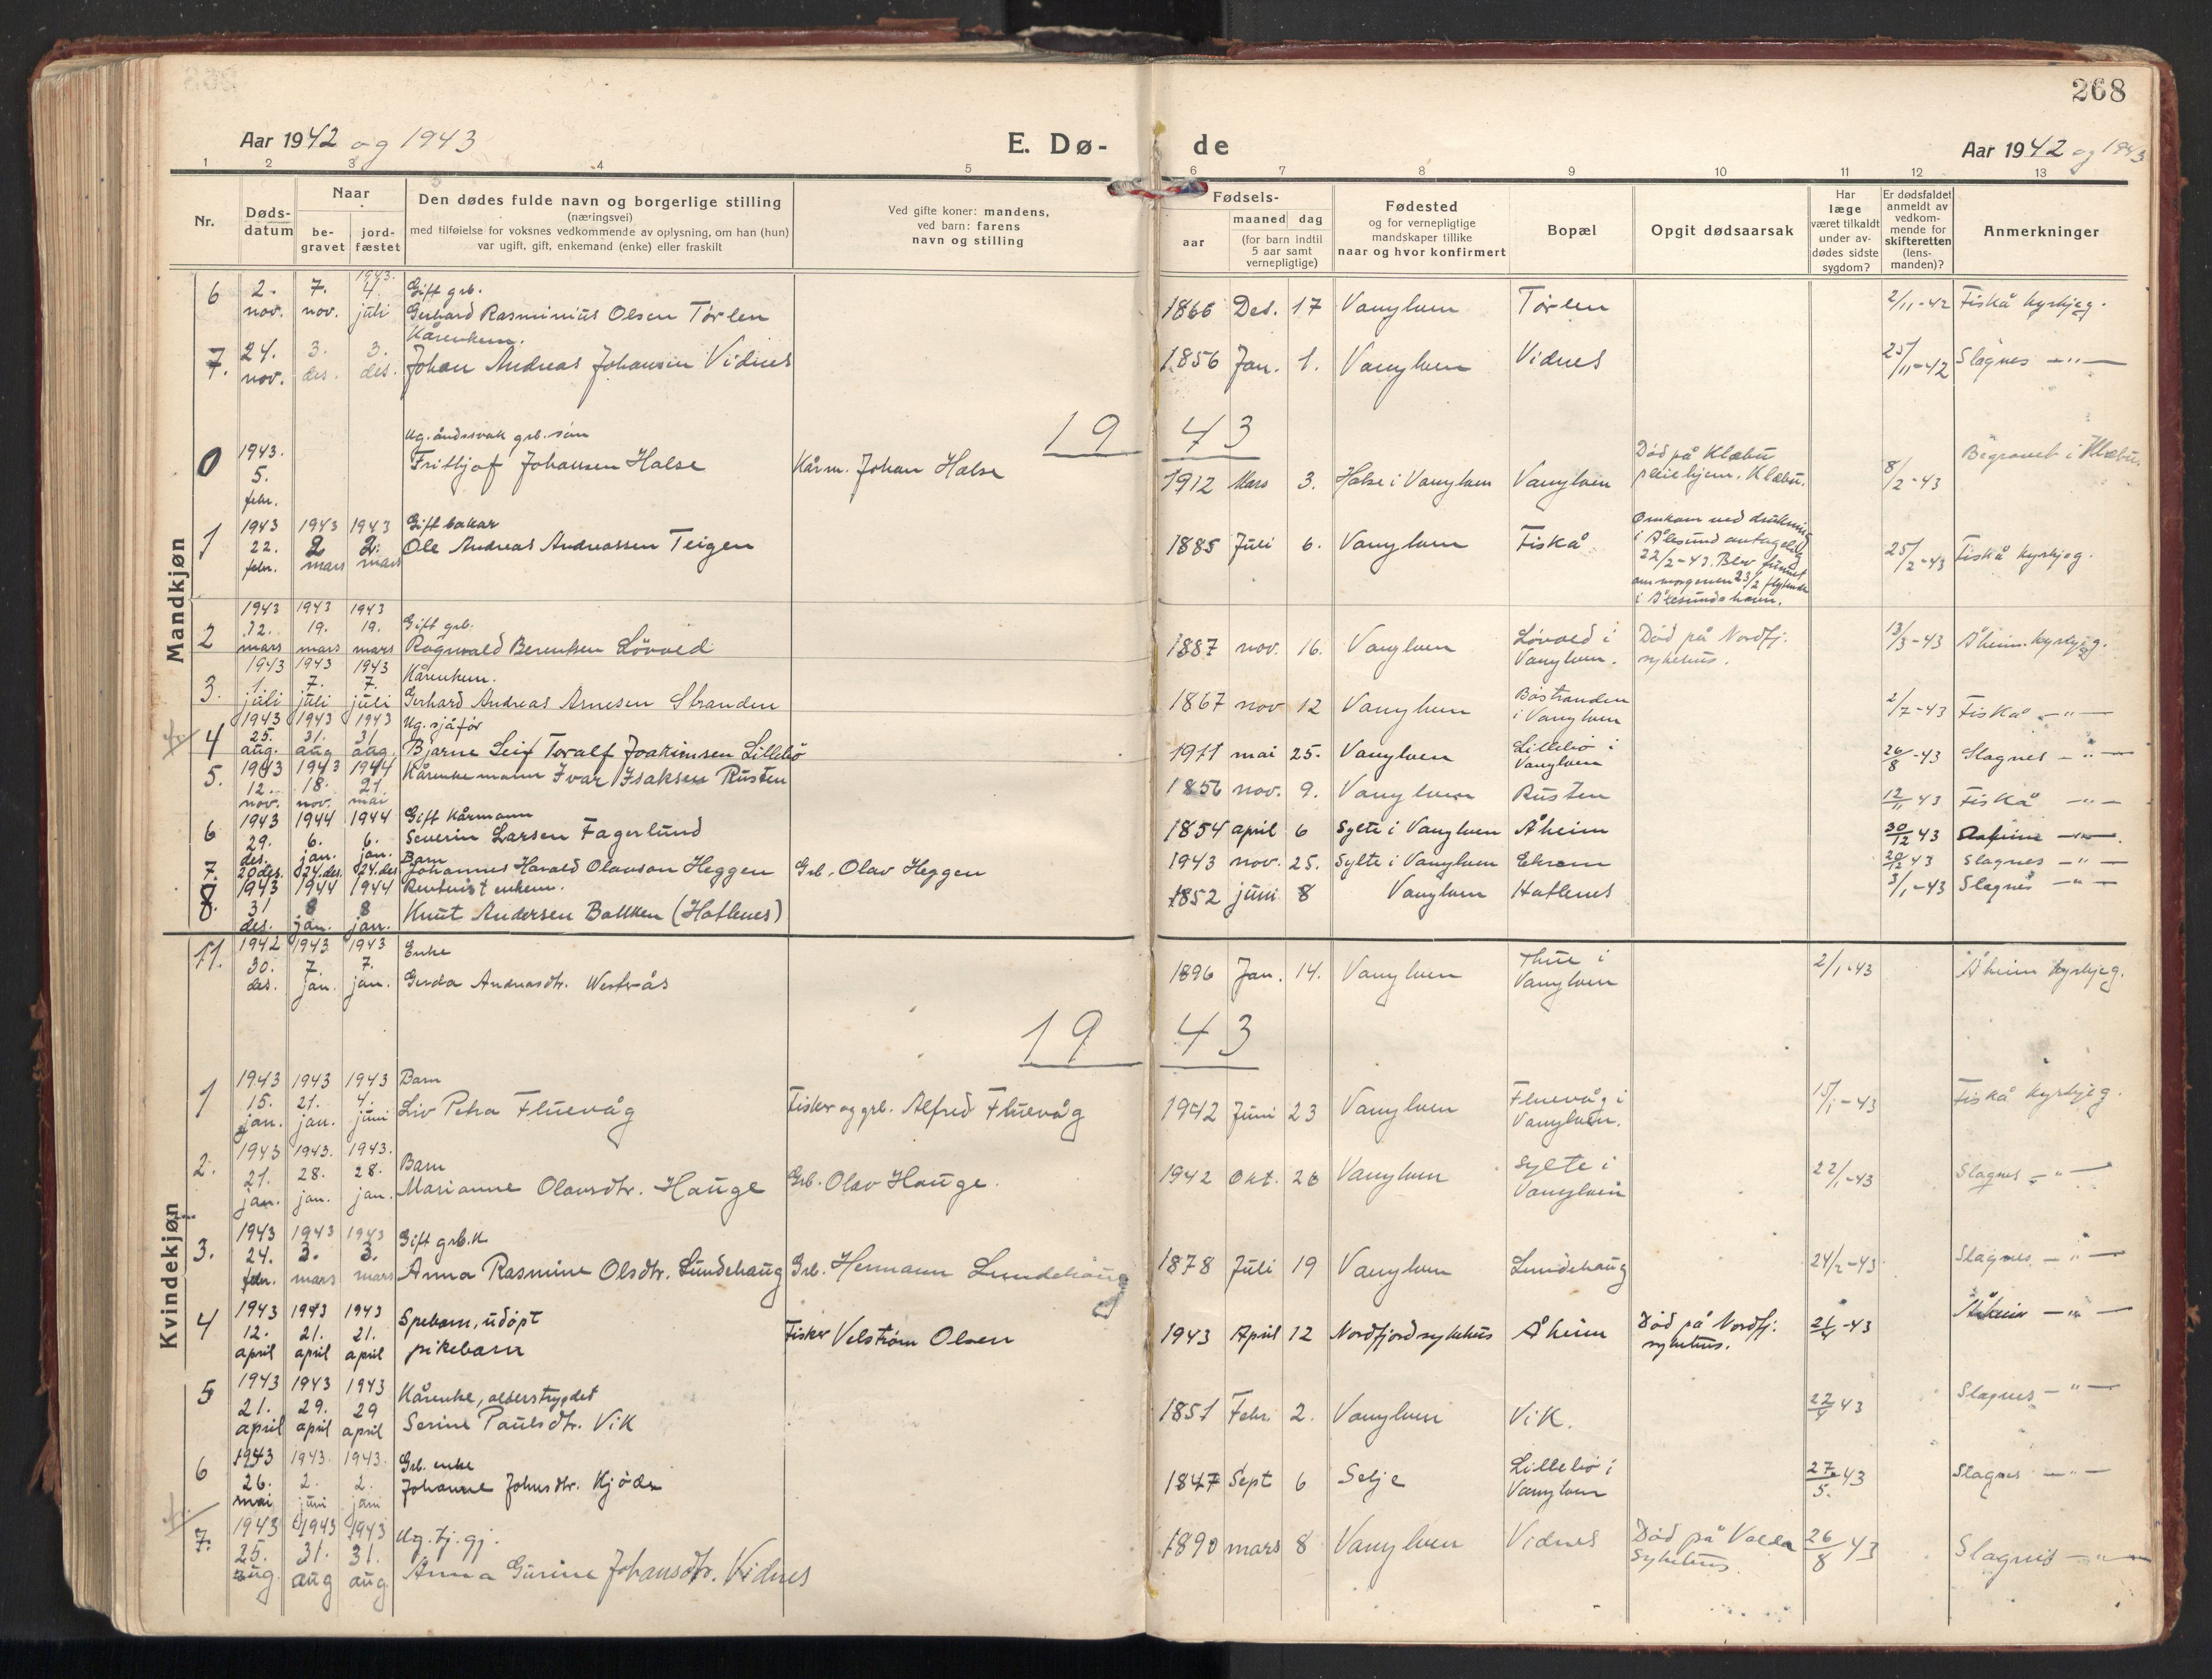 268
Aar 1942 og 1943
E. Dø- de
Aar 1942 og 1943
1 2 3 4 5 6 7 8 9 10 11 12 13
Nr.
Døds-datum
Naar
be-gravet
jord-fæstet
Den dødes fulde navn og borgerlige stilling
(næringsvei)
med tilføielse for voksnes vedkommende av oplysning, om han (hun)
var ugift, gift, enkemand (enke) eller fraskilt
Ved gifte koner: mandens,
ved barn: farens
navn og stilling
Fødsels-
aar
maaned dag
(for barn indtil
5 aar samt
vernepligtige)
Fødested
og for vernepligtige
mandskaper tillike
naar og hvor konfirmert
Bopæl
Opgit dødsaarsak
Har
læge
været tilkaldt
under av-
dødes sidste
sygdom?
Er dødsfaldet
anmeldt av
vedkom-
mende for
skifteretten
(lens-
manden)?
Anmerkninger
Mandkjøn
6 2. nov. 7. nov. 1943. 4. juli Gift grb.
Gerhard Rasminius Olsen Tørlen 1866 Des. 17 Vanylven Tørlen 2/11-42 Fiskå kyrkjeg.
7. 24. nov. 3. des. 3. des. Kårenkem.
Johan Andreas Johansen Vidnes 1856 Jan. 1. Vanylven Vidnes 25/11-42 Slagnes -"-
1943
0 1943. 5. febr. Ug. åndssvak grb. søn
Frithjof Johansen Halse Kårm. Johan Halse 1912 Mars 3. Halse i Vanylven Vanylven Død på Klæbu pleiehjem, Klæbu. 8/2-43 Begravet i Klæbu
1 1943 22. febr. 1943 2 mars 1943 2. mars Gift bakar
Ole Andreas Andreassen Teigen 1885 Juli 6. Vanylven Fiskå Omkom ved drukning
i Ålesund antagelig
22/2-43. Blev funnet
om morgenen 23/2 flytende
i Ålesunds havn. 25/2-43 Fiskå kyrkjeg.
2 1943 12. mars 1943 19. mars 1943 19. mars Gift grb.
Ragnvald Berentsen Løvold 1887 nov. 16. Vanylven Løvold i Vanylven. Død på Nordfj. sykehus. 13/3-43 Åheim kyrkjeg.
3. 1943 1. juli 1943 7. juli 1943 7. juli Kårenkem.
Gerhard Andreas Arnesen Stranden 1867 nov 12 Vanylven Båstranden i Vanylven 2/7-43 Fiskå -"-
4 1943 25. aug. 1943 31. aug 1943 31 aug. Ug. sjåfør
Bjarne Leif Toralf Joakimsen Lillebø 1911 mai 25. Vanylven Lillebø i Vanylven 26/8-43 Slagnes -"-
5. 1943 12. nov. 1943 18. nov. 1944 21. mai Kårenkemann Ivar Isaksen Rusten 1856 nov. 9. Vanylven Rusten 12/11 43 Fiskå -"-
6 1943 29. des. 1944 6. jan. 1944 6. jan. Gift Kårmann
Severin Larsen Fagerlund 1854 april 6 Sylte i Vanylven Åheim 30/12 43 -"-
7. 20 des. 24. des. 24. des Barn
Johannes Harald Olavson Heggen Grb. Olav Heggen 1943 nov. 25. Sylte i Vanylven Ekrem 20/12 43 Slagnes -"-
8. 1943 31 des. 1944 8 jan. 1944 8 jan. Rentenist enkem.
Knut Andersen Bakken (Hatlenes) 1852 juni 8 Vanylven Hatlenes 3/1-43 Slagnes -"-
Kvindekjøn
11. 1942 30. des. 1943 7. jan. 1943 7. jan. Enke
Gerda Andreasdtr. Westerås 1896 Jan. 14. Vanylven Thue i Vanylven 2/1-43 Åheim kyrkjeg.
1943
1 1943 15. jan. 1943 21. jan. 1943 4. juni Barn
Liv Petra Fluevåg Fisker og grb. Alfred Fluevåg 1942 Juni 23 Vanylven Fluevåg i Vanylven. 15/1-43 Fiskå kyrkjeg.
2. 1943 21. jan. 1943. 28. jan. 1943. 28. jan. Barn
Marianne Olavsdtr. Hauge Grb. Olav Hauge. 1942 Okt. 26 Vanylven Sylte i Vanylven 22/1-43 Slagnes -"-
3. 1943 24. febr. 1943 3. mars 1943 3. mars Gift grb.k
Anna Rasmine Olsdtr. Lundehaug Grb. Hermann Lundehaug 1878 Juli 19 Vanylven Lundehaug 24/2-43 Slagnes -"-
4 1943 12. april 1943 21. april 1943 21. april Spebarn, udøpt
pikebarn Fisker Velstrøm Olsen 1943 April 12 Nordfjord sykehus Åheim Død på Nordfj. sykehus. 21/4-43 Åheim -"-
5 1943 21. april 1943 29. april 1943 29 april Kårenke, alderstrygdet
Serine Paulsdtr. Vik 1851 Febr. 2. Vanylven Vik. 22/4 43 Slagnes -"-
6 1943 26. mai 1943. 2. juni 1943. 2. juni Grb. enke
Johanne Johnsdtr. Kjøde 1847 Sept 6 Selje Lillebø i Vanylven 27/5.-43 Slagnes -"-
7. 1943 25. aug. 1943 31. aug 1943 31. aug. Ug. tj. gj.
Anna Gurine Johansdtr. Vidnes 1890 mars 8 Vanylven Vidnes Død på Volda Sykehus. 26/8 43 Slagnes -"-